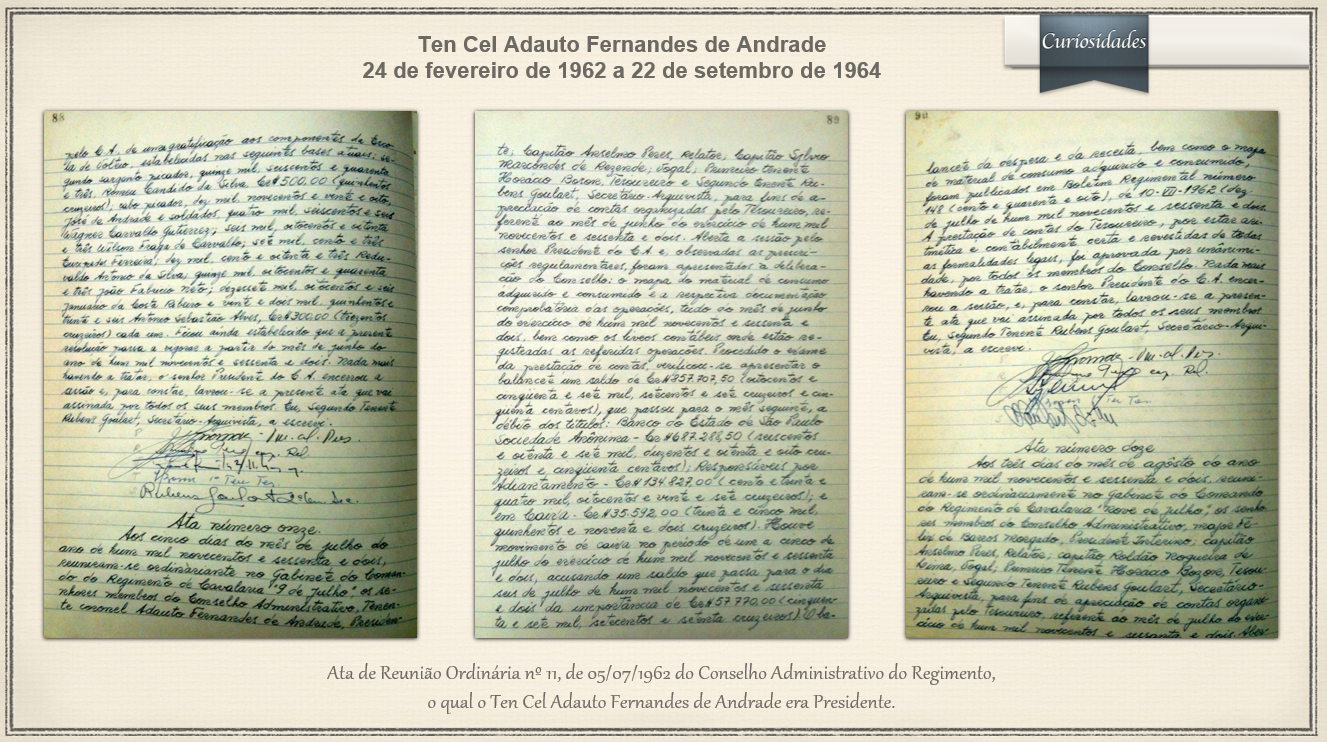 Curiosidades
Ten Cel Adauto Fernandes de Andrade
24 de fevereiro de 1962 a 22 de setembro de 1964
88
pelo C.A. de uma gratificação aos componentes da Esco-
la de Volteio, estabelecidas nas seguintes bases atuais: se-
gundo sargento picador, quinze mil, seissentos e quarenta
e três, Romeu Candido da Silva, Cr$500,00 (quinhentos
cruzeiros); cabo picador, dez mil, novecentos e vinte e oito,
José de Andrade e soldados, quatro mil, seiscentos e seis
Wagner Carvalho Gutierrez; seis mil, oitocentos e oitenta
e três Wilson Fraga de Carvalho; sete mil, cento e três
Euripedes Ferreira; dez mil, cento e oitenta e três
valdo Antonio da Silva; quinze mil, oitocentos e quarenta
e três João Fabricio Neto; dezessete mil, oitocentos e seis
Januario da Costa Ribeiro e vinte e dois mil, quinhentos e
trinta e seis Antonio Sebastião Alves, Cr$300,00 (trezentos
cruzeiros) cada um. Ficou ainda estabelecido que a presente
resolução passa a vigorar a partir do mês de junho do
ano de hum mil novecentos e sessenta e dois. Nada mais
havendo a tratar, o senhor Presidente do C.A. encerrou a
sessão e, para constar, lavrou-se a presente ata que vai
assinada por todos os seus membros. Eu, Segundo Tenente
Rubens Goulart, Secretário-Arquivista, a escrevi.
Ata número onze.
Aos cinco dias do mês de julho do
ano de hum mil novecentos e sessenta e dois,
reuniram-se ordinariante no Gabinete do Coman-
do do Regimento de Cavalaria "9 de Julho" os se-
nhores membros do Conselho Administrativo, Tenen-
te coronel Adauto Fernandes de Andrade, Presiden-
89
te; Capitão Anselmo Peres, Relator; Capitão Sylvio
Marcondes de Rezende, Vogal; Primeiro Tenente
Horácio Bozon, Tesoureiro e Segundo Tenente Ru-
bens Goulart, Secretário-Arquivista, para fins de a-
preciação de contas organizadas pelo Tesoureiro, re-
ferente ao mês de junho do exercício de hum mil
novecentos e sessenta e dois. Aberta a sessão pelo
senhor Presidente do C.A. e, observadas as prescri-
ções regulamentares, foram apresentados à delibera-
ção do Conselho: o mapa do material de consumo
adquirido e consumido e a respectiva documentação
comprobatória das operações, tudo do mês de junho
do exercício de hum mil novecentos e sessenta e
dois, bem como os livros contábeis onde estão re-
gistradas as referidas operações. Procedido o exame
da prestação de contas, verificou-se apresentar o
balancete um saldo de Cr$857.707,50 (oitocentos e
cinqüenta e sete mil, setecentos e sete cruzeiros e cin-
qüenta centavos), que passou para o mês seguinte, a
débito dos títulos: Banco do Estado de São Paulo
Sociedade Anônima - Cr$687.288,50 (seiscentos
e oitenta e sete mil, duzentos e oitenta e oito cru-
zeiros e cinqüenta centavos); Responsáveis por
Adiantamento - Cr$134.827,00 (cento e trinta e
quatro mil, oitocentos e vinte e sete cruzeiros); e
em Caixa - Cr$35.592,00 (trinta e cinco mil,
quinhentos e noventa e dois cruzeiros). Houve
movimento de caixa no período de um a cinco de
julho do exercício de hum mil novecentos e sessenta
e dois, acusando um saldo que passa para o dia
seis de julho de hum mil novecentos e sessenta
e dois da importância de Cr$57.770,00 (cinquen-
ta e sete mil, setecentos e setenta cruzeiros). O ba-
90
lancete da despesa e da receita, bem como o mapa
de material de consumo adquirido e consumido,
foram publicados em Boletim Regimental número
148 (cento e quarenta e oito), de 10-VII-1962 (dez
de julho de hum mil novecentos e sessenta e dois.
A prestação de contas do Tesoureiro, por estar arit-
mética e contabilmente certa e revestidas de todas
as formalidades legais, foi aprovada por unânimi-
dade, por todos os membros do Conselho. Nada mais
havendo a tratar, o senhor Presidente do C.A. encer-
rou a sessão e, para constar, lavrou-se a presen-
te ata que vai assinada por todos os seus membros
Eu, Segundo Tenente Rubens Goulart, Secretário-Arqui-
vista, a escrevi.
Ata número doze
Aos três dias do mês de agôsto do ano
de hum mil novecentos e sessenta e dois, reuni-
ram-se ordinariamente no Gabinete do Comando
do Regimento de Cavalaria "Nove de Julho", os senho
res membros do Conselho Administrativo, major Fe-
liz de Barros Morgado, Presidente Interino; capitão
Anselmo Peres, Relator; capitão Roldão Nogueira de
Lima, Vogal; Primeiro Tenente Horácio Bozon, Tesou-
reiro e Segundo Tenente Rubens Goulart, Secretário-
Arquivista, para fins de apreciação de contas organi-
zadas pelo tesoureiro, referente ao mês de julho do exer-
cício de hum mil novecentos e sessenta e dois. Aber-
Ata de Reunião Ordinária nº 11, de 05/07/1962 do Conselho Administrativo do Regimento,
o qual o Ten Cel Adauto Fernandes de Andrade era Presidente.